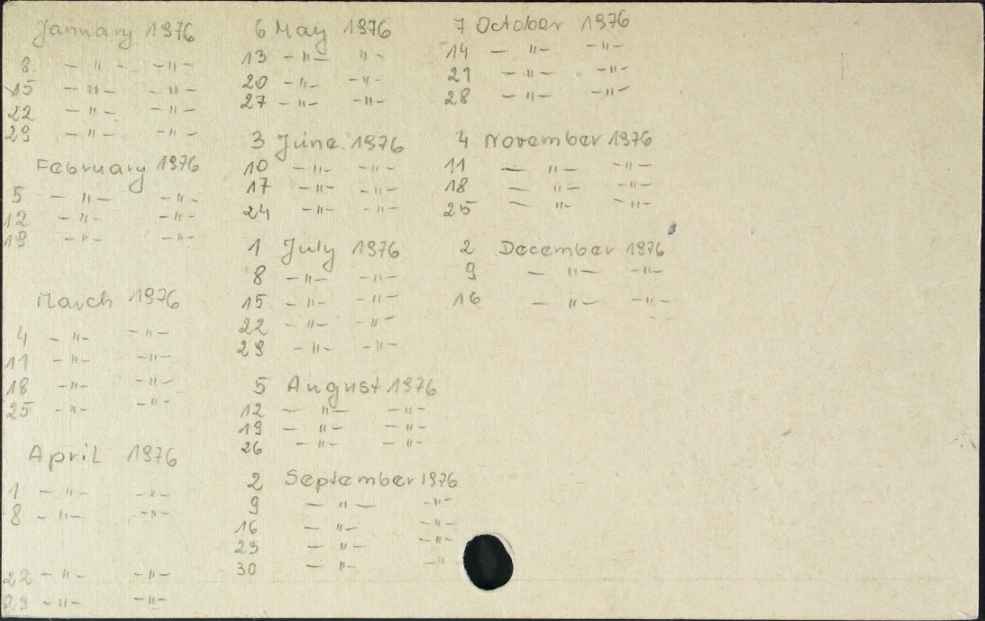 January 1976
8. — " — — " —
15 — " — — " —
22 — " — — " —
29 — " — — " —
February 1976
5 — " — — " —
12 — " — — " —
19 — " — — " —
March 1976
4 — " — — " —
11 — " — — " —
18 — " — — " —
25 — " — — " —
April 1976
1 — " — — " —
8 — " — — " —
22 — " — — " —
29 — " — — " —
6 May 1976
13 — " — " —
20 — " — — " —
27 — " — — " —
3 June 1976
10 — " — — " —
17 — " — — " —
24 — " — — " —
1 July 1976
8 — " — — " —
15 — " — — " —
22 — " — — " —
29 — " — — " —
5 August 1976
12 — " — — " —
19 — " — — " —
26 — " — — " —
2 September 1976
9 — " — — " —
16 — " — — " —
23 — " — — " —
30 — " — — " —
7 October 1976
14 — " — — " —
21 — " — — " —
28 — " — — " —
4 November 1976
11 — " — — " —
18 — " — — " —
25 — " — — " —
2 December 1976
9 — " — — " —
16 — " — — " —